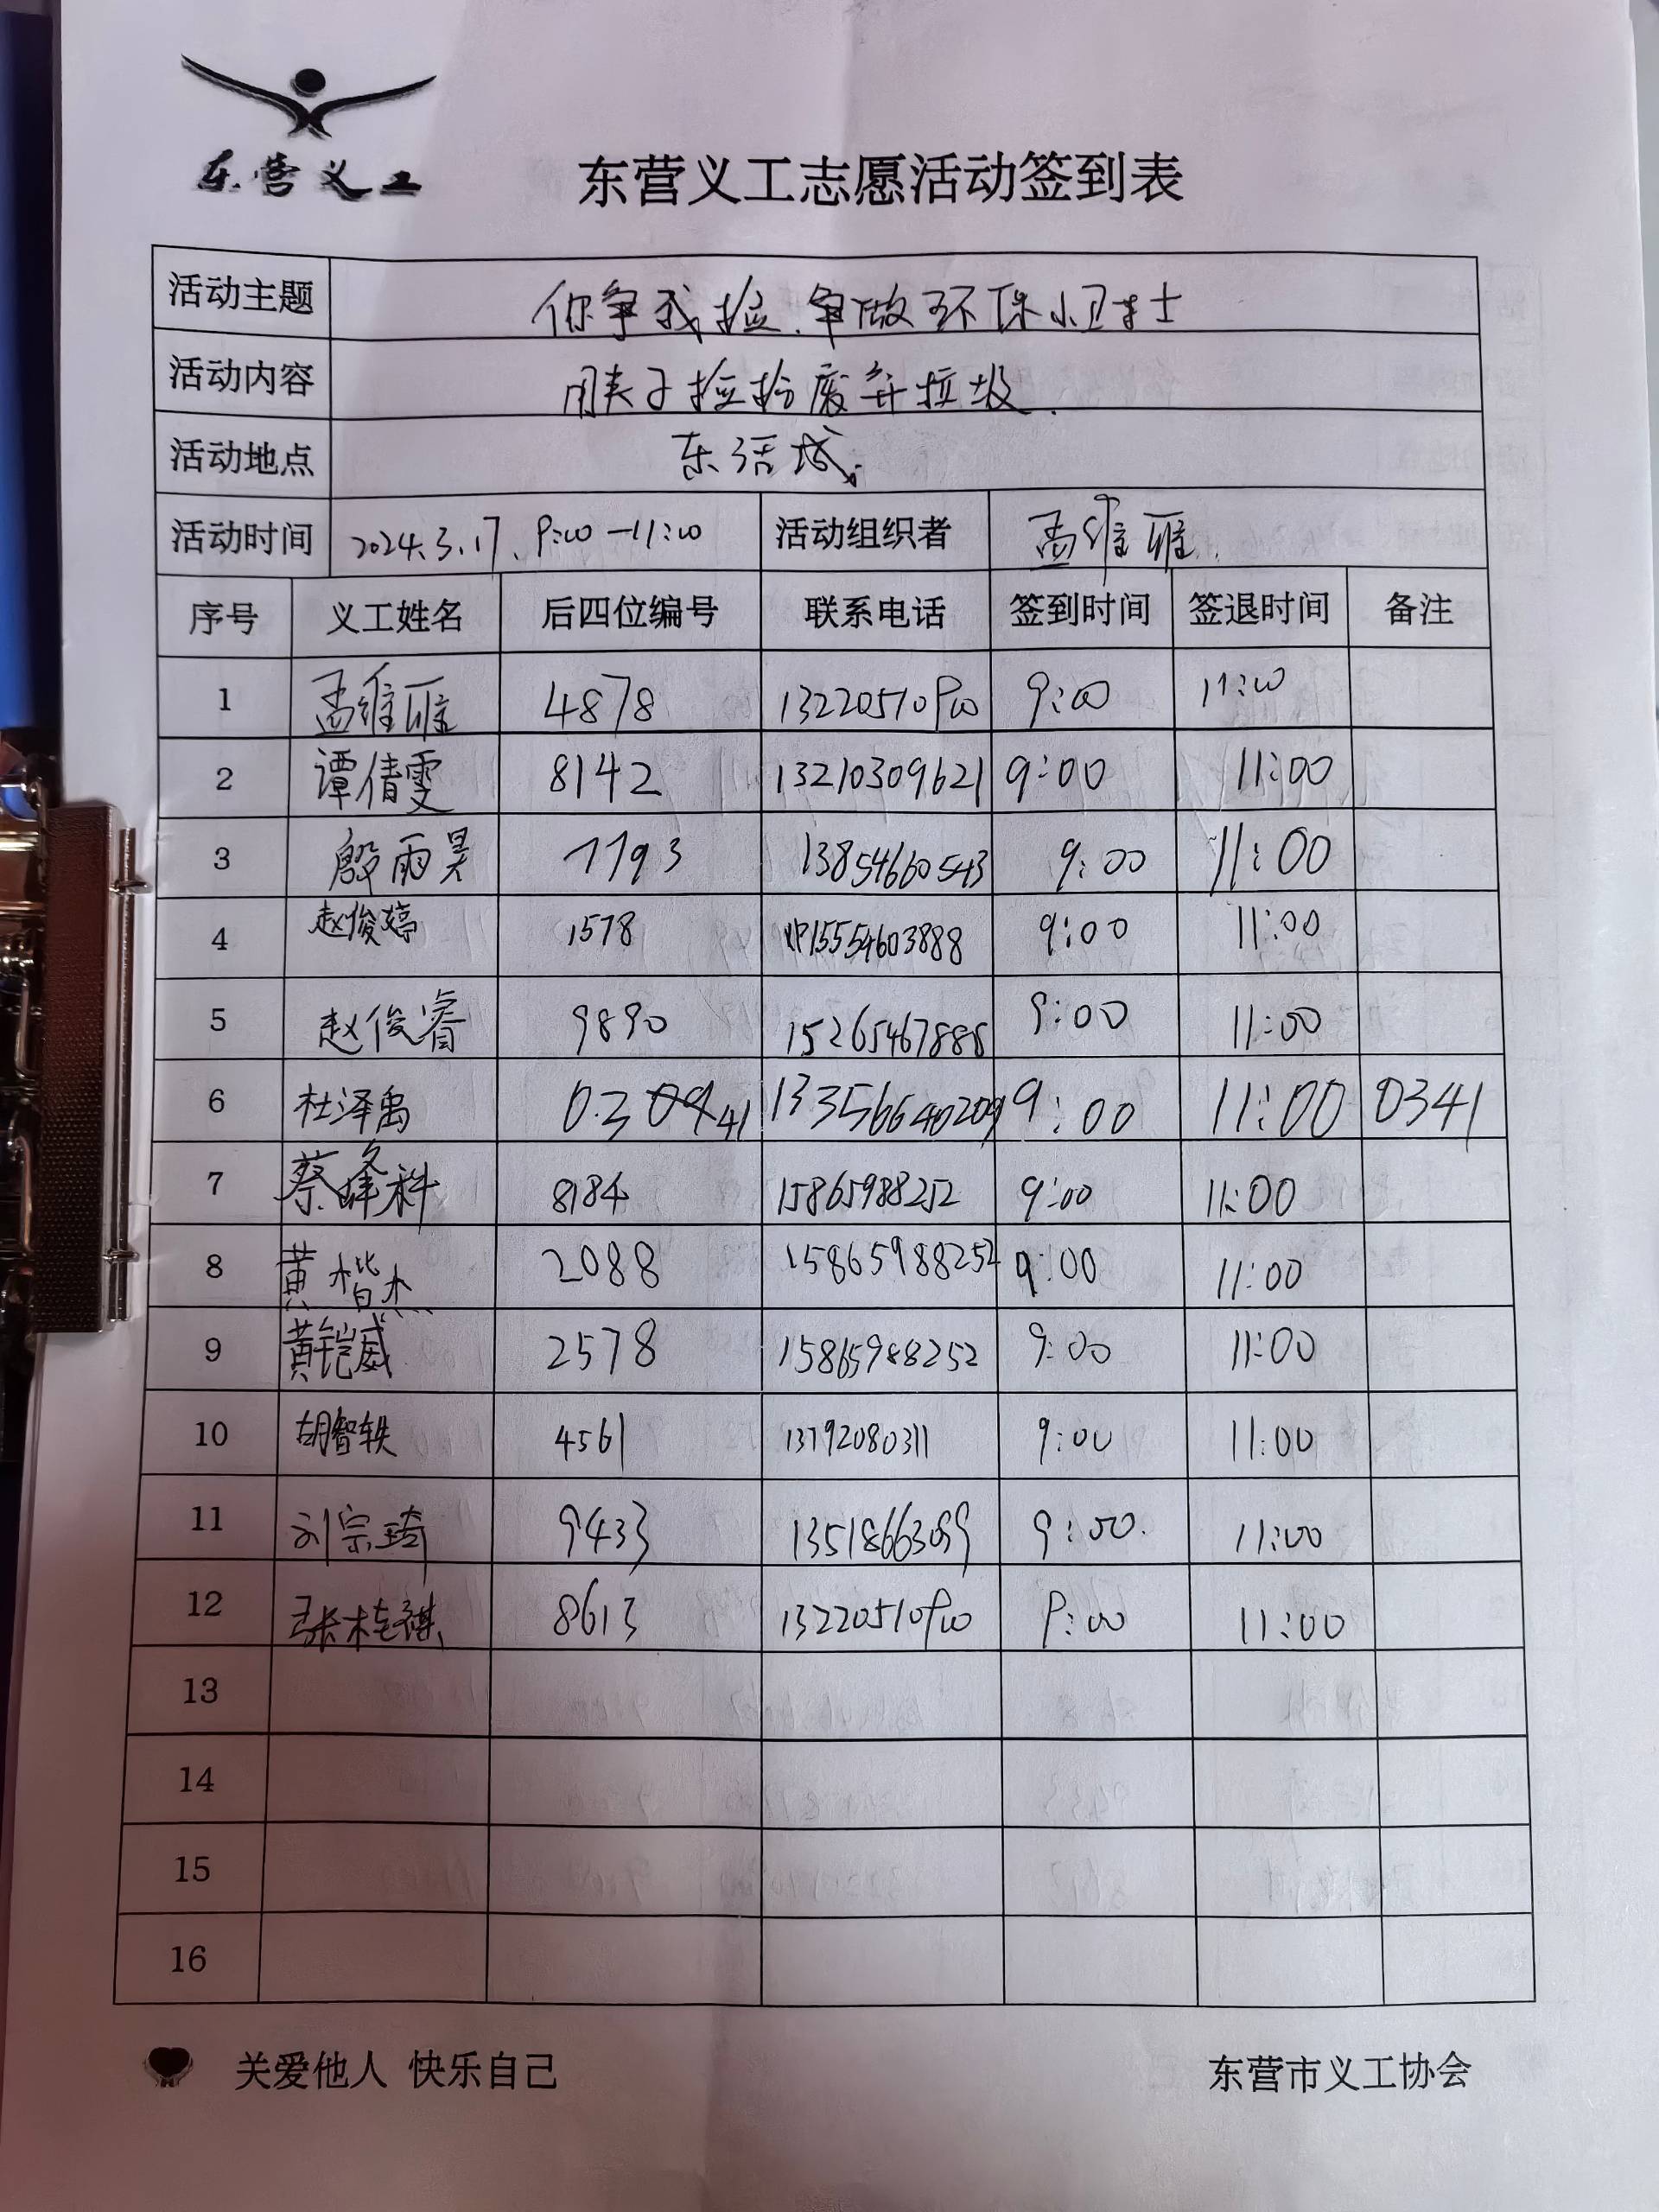 东营义工
东营义工志愿活动签到表
活动主题 你争我捡.争做环保小卫士
活动内容 用夹子捡拾废弃垃圾.
活动地点 东活城.
活动时间 2024.3.17. 9:00-11:00 活动组织者 孟维雁.
序号 义工姓名 后四位编号 联系电话 签到时间 签退时间 备注
1 孟维雁 4878 13220510900 9:00 11:00
2 谭倩雯 8142 13210309621 9:00 11:00
3 殷雨昊 7793 13854660543 9:00 11:00
4 赵俊婷 1578 15554603888 9:00 11:00
5 赵俊睿 9890 15265467888 9:00 11:00
6 杜泽禹 0341 13356640209 9:00 11:00 0341
7 蔡峰科 8184 15865988252 9:00 11:00
8 黄楷杰 2088 15865988252 9:00 11:00
9 黄铠威 2578 15865988252 9:00 11:00
10 胡智轶 4561 13792080311 9:00 11:00
11 刘宗琦 9433 9:00. 11:00
12 张桂祺 8613 13220510900 9:00 11:00
13
14
15
16
关爱他人 快乐自己 东营市义工协会